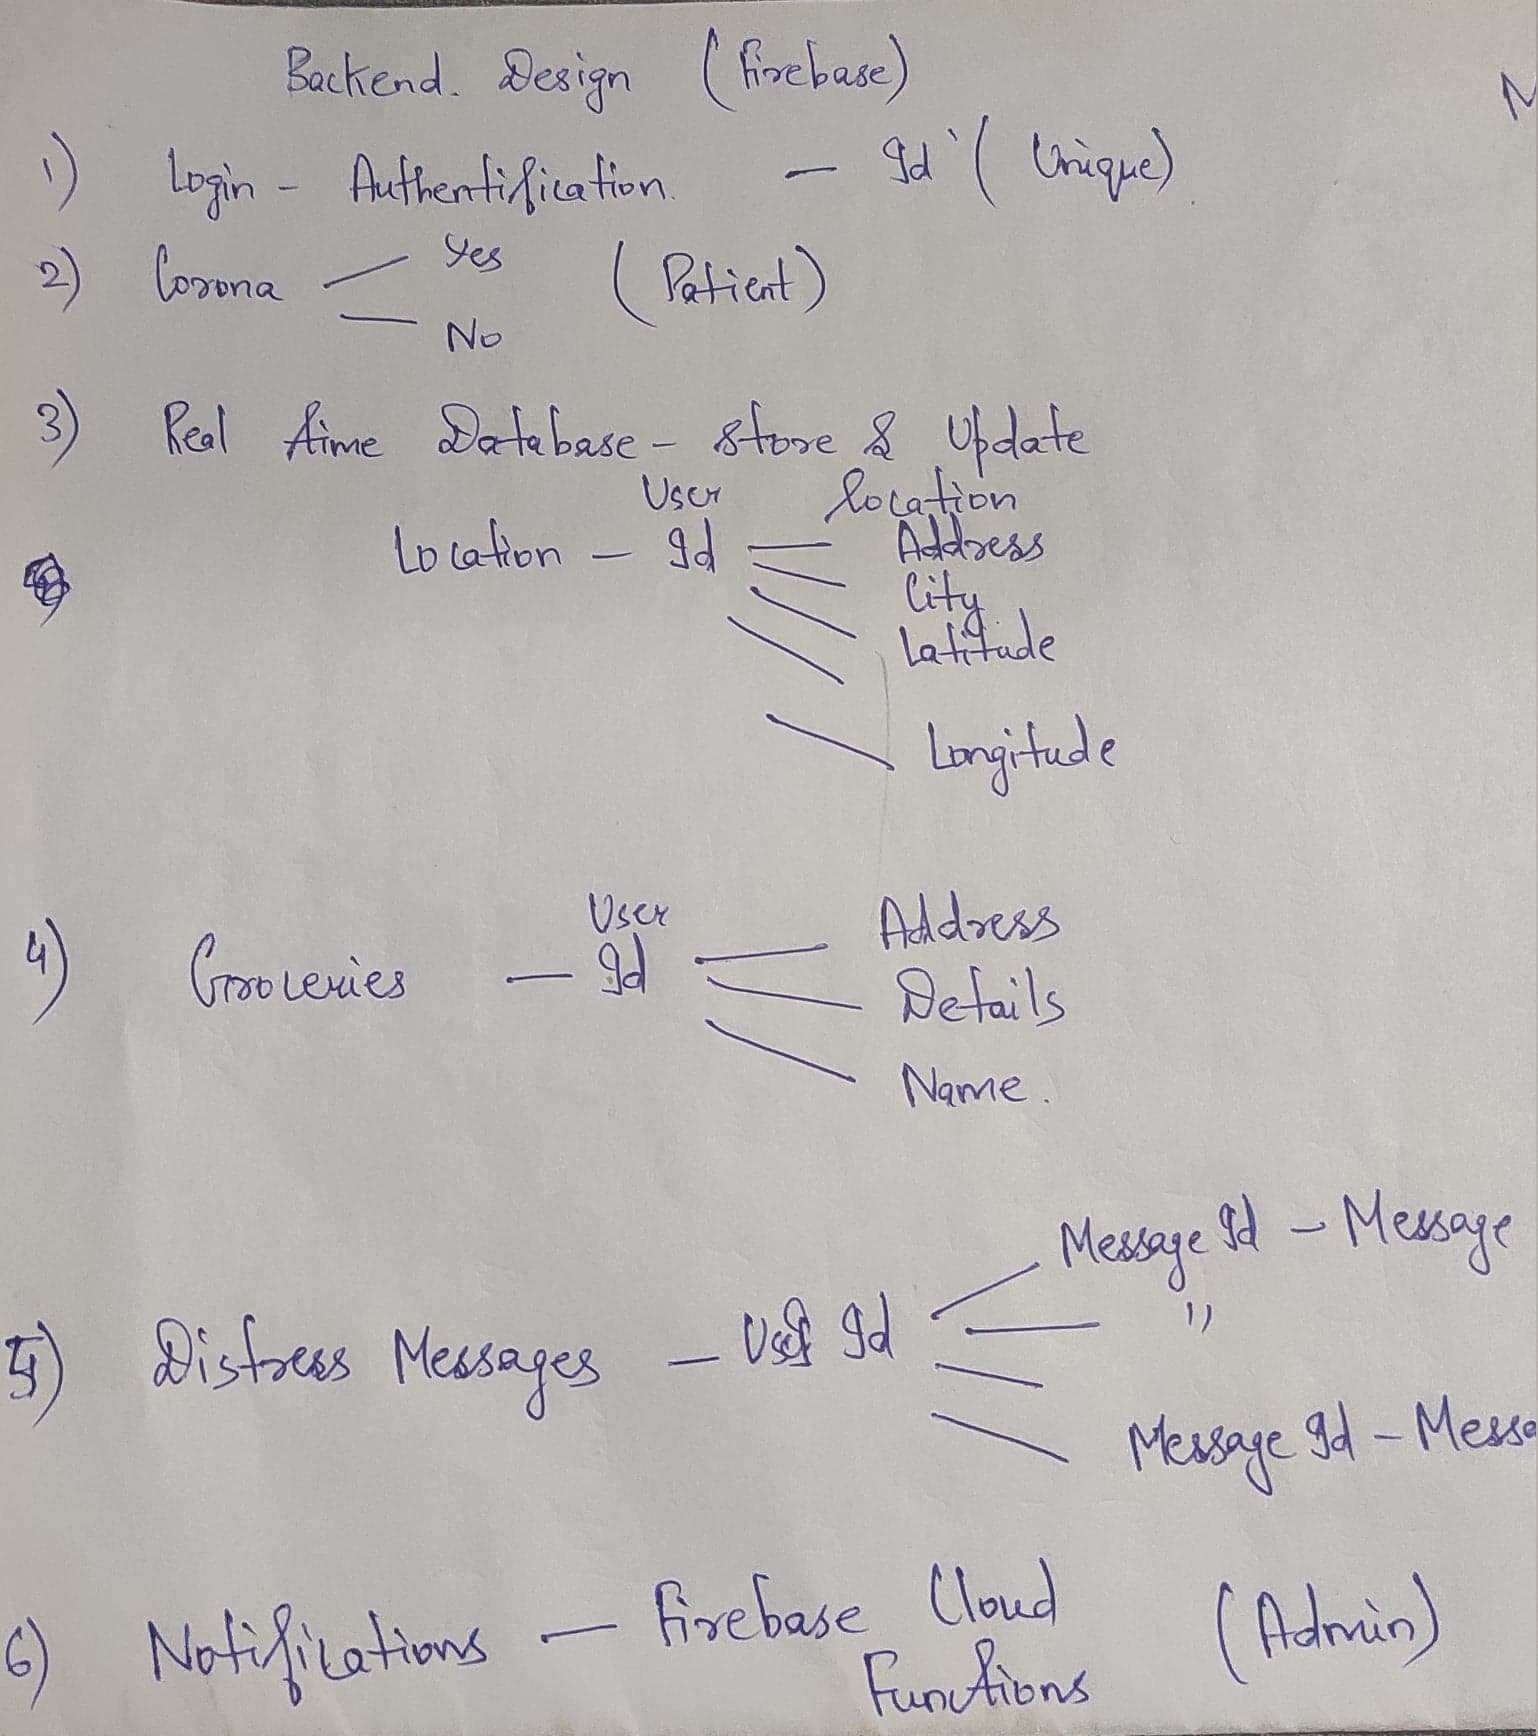 Backend. Design (Firebase)
1) Login - Authentification. - Id (Unique)
2) Corona Yes (Patient)
No
3) Real time Database - Store & Update
User location
Location - Id Address
City
Latitude
Longitude
User
4) Groceries - Id Address
Details
Name.
Message Id - Message
5) Distress Messages - User Id "
Message Id - Messa
6) Notifications - Firebase Cloud (Admin)
Functions